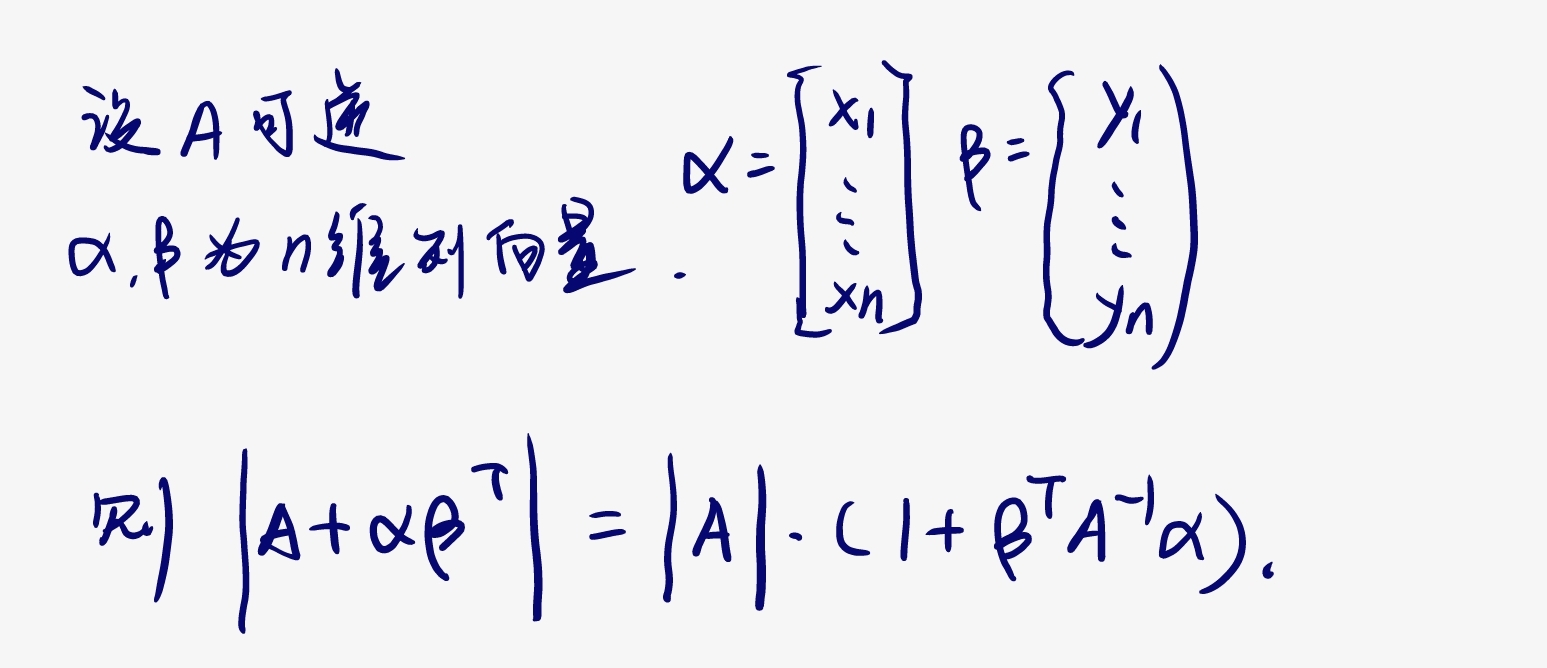 设 A 可逆
α, β 为 n 维列向量. α = [x₁ ⋮ xn] β = (y₁ ⋮ yn)
则 |A + αβᵀ| = |A| · (1 + βᵀA⁻¹α).